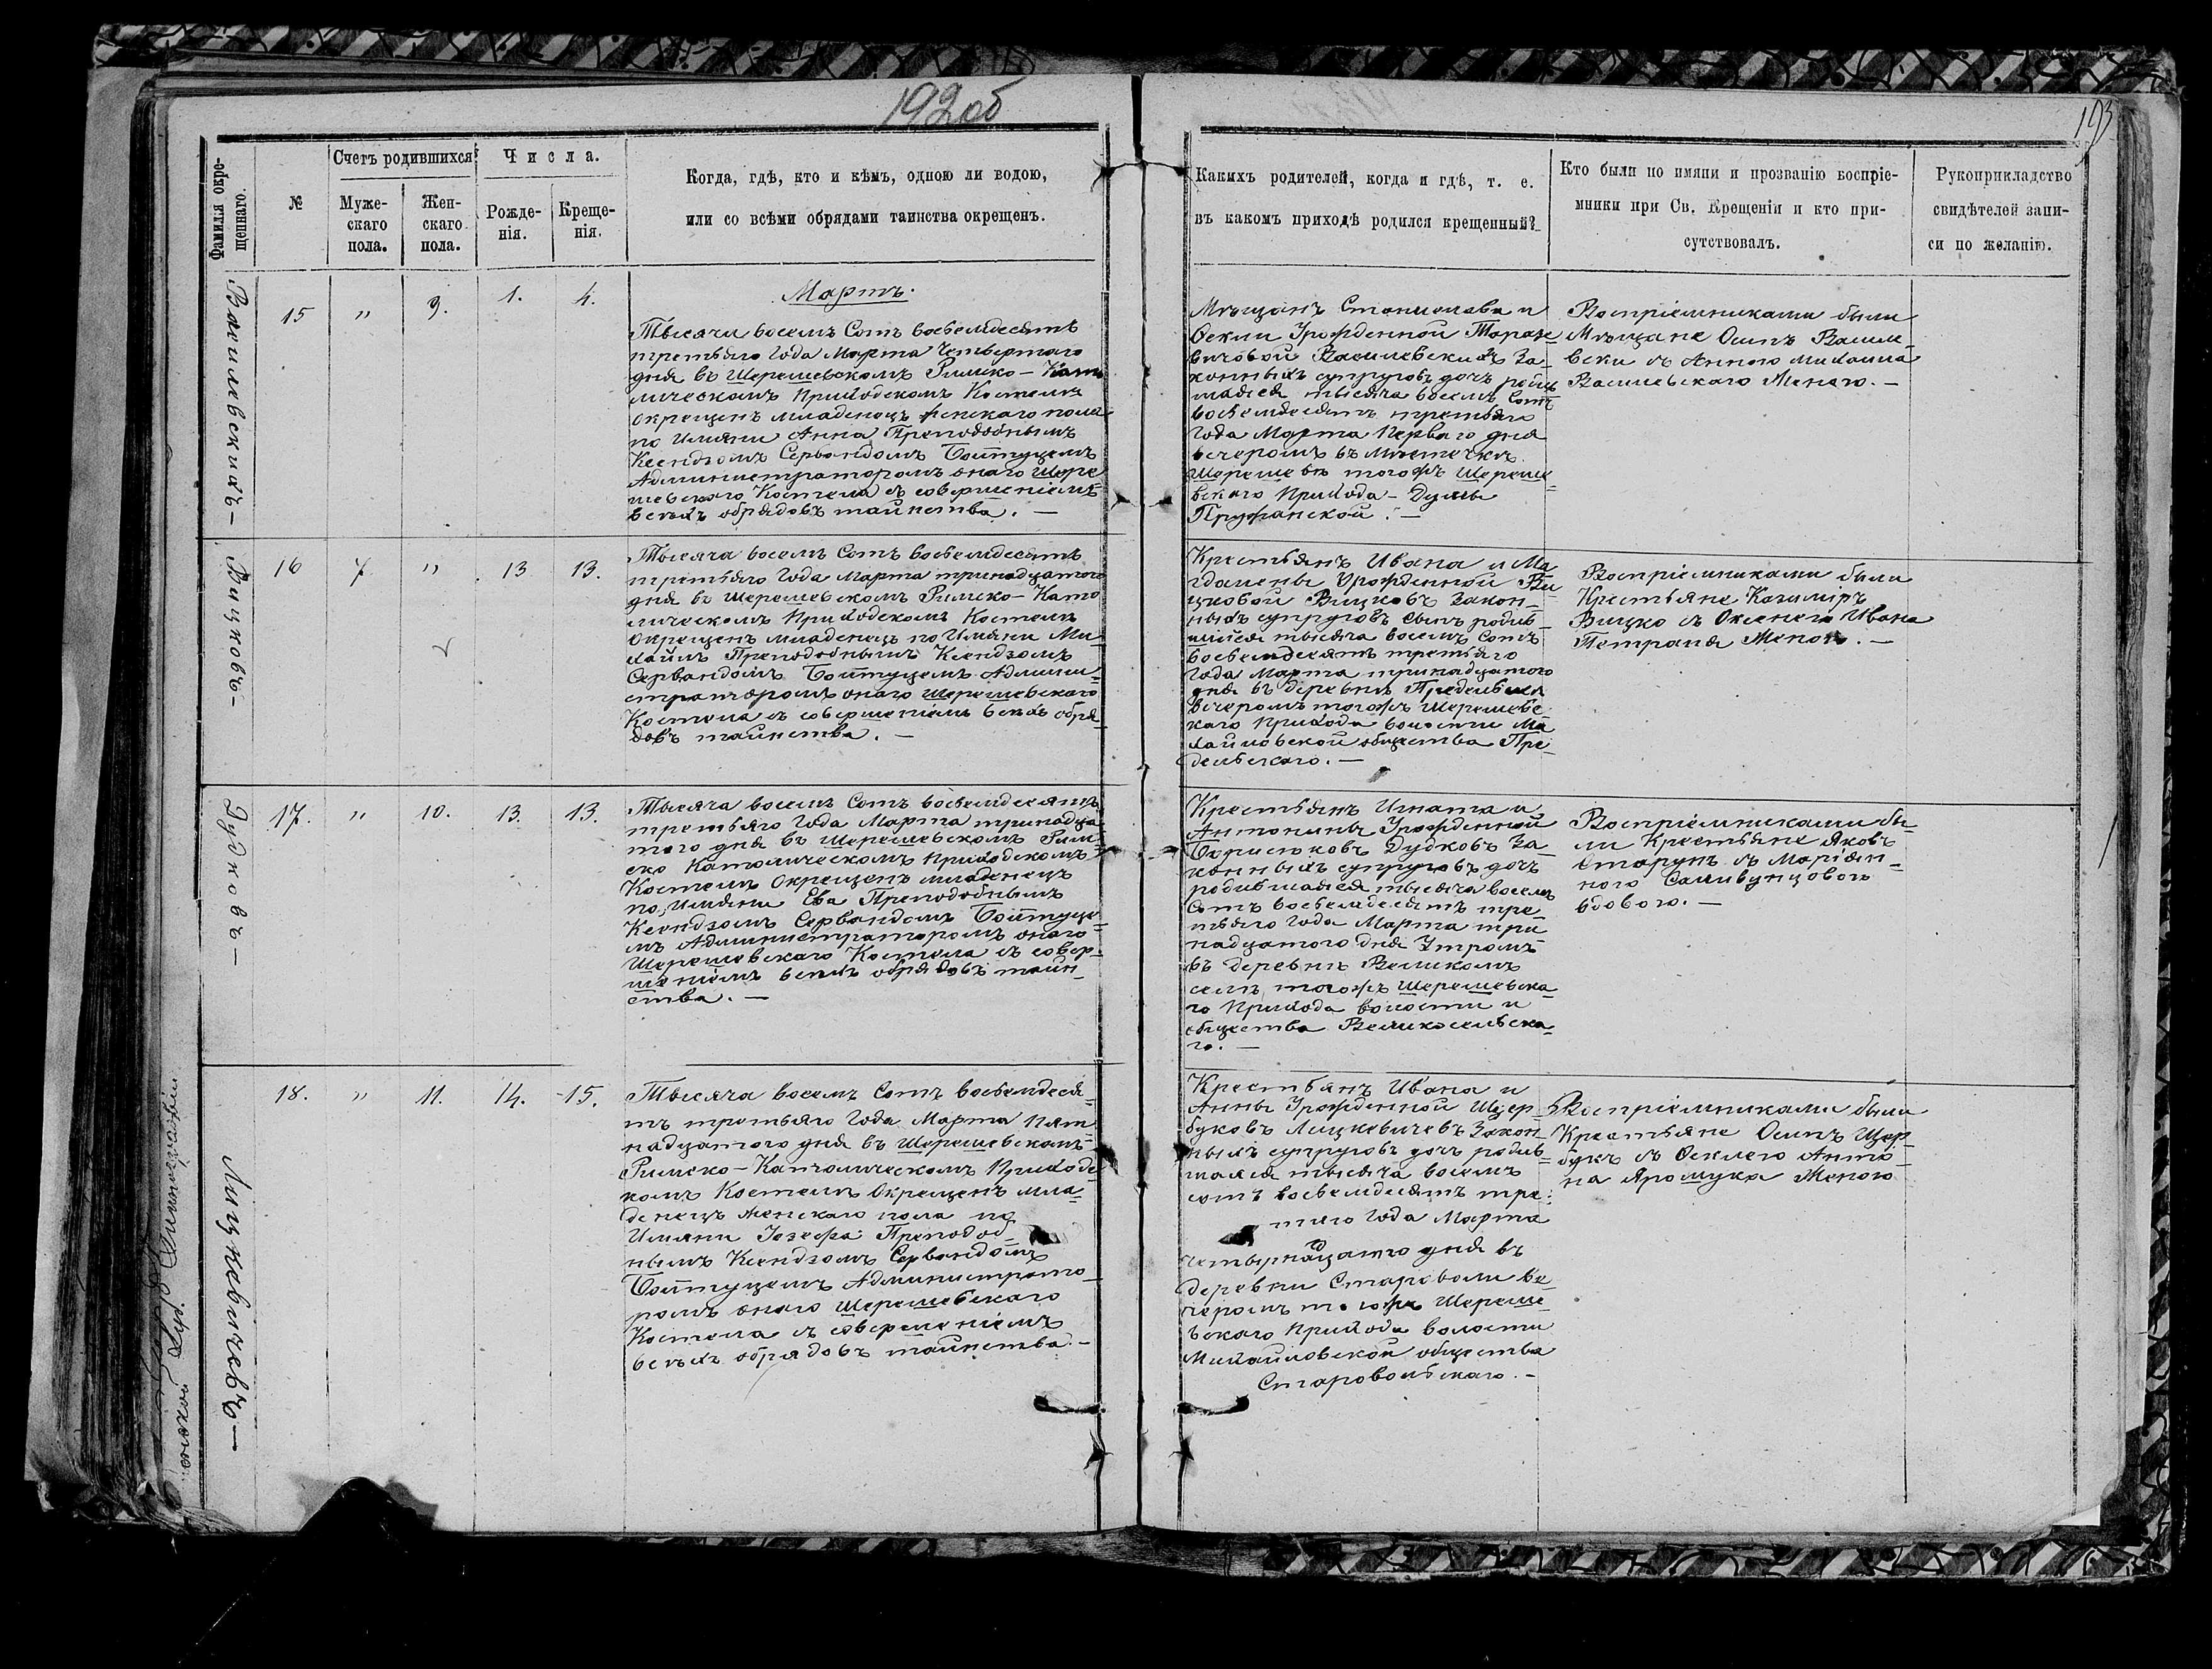 192 об
193
Фамилія окре-
щеннаго.
№
Счетъ родившихся
Муже-
скаго
пола.
Жен-
скаго
пола.
Числа.
Рожде-
нія.
Креще-
нія.
Когда, гдѣ, кто и кѣмъ, одною ли водою,
или со всѣми обрядами таинства окрещенъ.
Какихъ родителей, когда и гдѣ, т. е.
въ какомъ приходѣ родился крещенный?
Кто были по имяни и прозванію воспріе-
мники при Св. Крещеніи и кто при-
сутствовалъ.
Рукоприкладство
свидѣтелей запи-
си по желанію.
Василевскихъ –
15 " 9. 1. 4.
Мартъ.
Тысяча восемъ Сотъ восьемдесятъ
третьяго Года Марта Четвертаго
дня въ Шерешевскомъ Римско-Като
лическомъ Приходскомъ Костелѣ
окрещенъ младенецъ женскаго пола
по Имяни Анна Преподобнымъ
Ксендзомъ Сервандомъ Бойтуцемъ
Администраторомъ онаго Шере
шевскаго Костела съ совершеніемъ
всѣхъ обрядовъ таинства. —
Мѣщанъ Станислава и
Феклы Урожденной Тарасе
вичовой Василевскихъ За-
конныхъ супруговъ дочь родив
шаяся тысяча восемъ Сотъ
восьемдесятъ третьяго
Года Марта Перваго дня
вечеромъ въ Мѣстечкѣ
Шерешевѣ тогожъ Шереше
вскаго Прихода – Думы
Пружанской. —
Воспріемниками были
Мѣщане Осипъ Васили-
вски съ Анною Михаила
Василевскаго Женою. —
Вицковъ –
16 7 " 13 13.
Тысяча восемъ Сотъ восьемдесятъ
третьяго Года Марта тринадцатого
дня въ Шерешевскомъ Римско-Като
лическомъ Приходскомъ Костелѣ
Окрещенъ младенецъ по Имяни Ми-
хаилъ Преподобнымъ Ксендзомъ
Сервандомъ Бойтуцемъ Админи-
страторомъ онаго Шерешевскаго
Костела съ совершеніемъ всѣхъ обря-
довъ таинства. —
Крестьянъ Ивана и Ма-
гдалены Урожденной Ви
цковой Вицковъ Закон-
ныхъ супруговъ сынъ родив-
шійся тысяча восемъ Сотъ
восьемдесятъ третьяго
Года Марта тринадцатого
дня въ деревнѣ
Вечеромъ тогожъ Шерешевс
каго Прихода волости Ми
хайловской общества Пре-
дельскаго. —
Воспріемниками были
Крестьяне Казиміръ
Вицко съ Ксенею Ивана
Петраша Женою. —
Дудковъ –
17. " 10. 13. 13.
Тысяча восемъ Сотъ восьемдесятъ
третьяго Года Марта тринадца
таго дня въ Шерешевскомъ Рим-
ско Католическомъ Приходскомъ
Костелѣ Окрещенъ младенецъ
по Имяни Ева Преподобнымъ
Ксендзомъ Сервандомъ Бойтуце-
мъ Администраторомъ онаго
Шерешевскаго Костела съ совер-
шеніемъ всѣхъ обрядовъ таин-
ства. —
Крестьянъ Игната и
Антонины Урожденной
Борисюковъ Дудковъ За
конныхъ супруговъ дочь
родившаяся тысяча восемъ
Сотъ восьемдесятъ тре-
тьяго Года Марта три
надцатого дня Утромъ
въ деревнѣ Великомъ
селѣ тогожъ Шерешевска-
го Прихода волости и
общества Великосельска-
го. —
Воспріемниками бы-
ли Крестьяне Яковъ
Старунъ съ Маріян-
ною
вдовою. —
Лицкевичевъ –
18. " 11. 14. 15.
Тысяча восемъ Сотъ восьемдеся-
тъ третьяго Года Марта Пят-
надцатого дня въ Шерешевскомъ
Римско-Католическомъ Приходс-
комъ Костелѣ Окрещенъ мла-
денецъ женскаго пола по
Имяни Іозефа Преподоб-
нымъ Ксендзомъ Сервандомъ
Бойтуцемъ Администрато-
ромъ онаго Шерешевскаго
Костела съ совершеніемъ
всѣхъ обрядовъ таинства. –
Крестьянъ Ивана и
Анны Урожденной Щер-
буковъ Лицкевичевъ Закон-
ныхъ супруговъ дочь родив-
шаяся тысяча восемъ
сотъ восьемдесятъ тре-
тяго Года Марта
четырнадцатго дня въ
деревни Староволи Ве-
черомъ тогожъ Шереше-
вскаго Прихода волости
Михайловской общества
Старовольскаго. –
Воспріемниками были
Крестьяне Осипъ Щер-
букъ съ Феклею Анто-
на Ярошука Женою